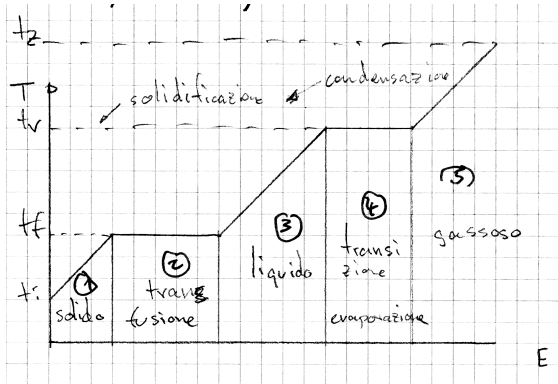 tz
T
solidificazione
condensazione
tv
tf
ti
①
solido
②
trans
fusione
③
liquido
④
transi
zione
evaporazione
⑤
gassoso
E